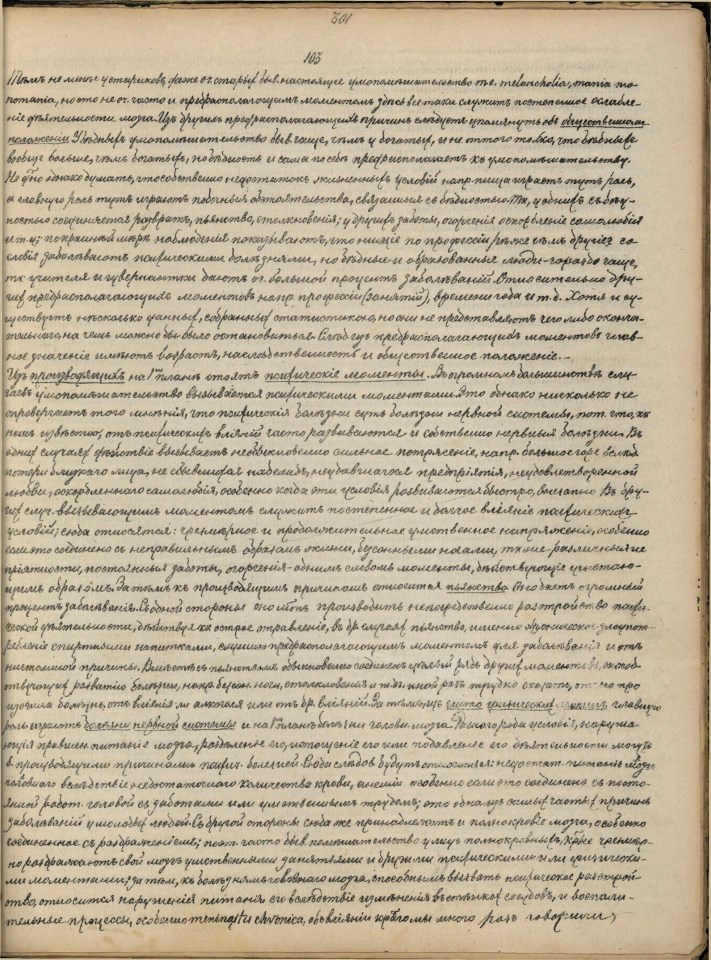 301
103
Тѣмъ не менѣе у стариковъ, даже оч. старыхъ быв. настоящее умопомѣшательство т.е. melancholia, mania mo-
notania, но это не оч. часто и предрасполагающимъ моментомъ здѣсь все таки служитъ постепенное ослабле-
ніе дѣятельности мозга. Изъ другихъ предрасполагающихъ причинъ слѣдуетъ упомянуть объ общественномъ
положеніи. У бѣдныхъ умопомѣшательство быв. чаще, чѣмъ у богатыхъ, и не оттого только, что бѣдныхъ
вообще больше, чѣмъ богатыхъ, но бѣдность и сама по себѣ предрасполагаетъ къ умопомѣшательству.
Не однако думать, что собственно недостатокъ жизненныхъ условій напр. пища играетъ тутъ роль,
а главную роль тутъ играютъ побочныя обстоятельства, связанныя съ бѣдностью. Такъ, у однихъ съ бѣд-
ностью соединяется развратъ, пьянство, столкновенія; у другихъ заботы, огорченія оскорбленіе самолюбія
и т.п.; по крайней мѣрѣ наблюденія показываютъ, что нищіе по профессіи рѣже чѣмъ другія со-
словія заболѣваютъ психическими болѣзнями, но бѣдные и образованные люди гораздо чаще,
тк учителя и гувернантки даютъ оч. большой процентъ заболѣваній. Относительно дру-
гихъ предрасполагающихъ моментовъ напр. профессіи (занятій), времени года и т.д. Хотя и су-
ществуютъ нѣсколько данныхъ, собранныхъ статистикою, но они не представляютъ чего либо оконча-
тельнаго, на чемъ можно бы было остановиться. Слѣд. изъ предрасполагающихъ моментовъ глав-
ное значеніе имѣютъ возрастъ, наслѣдственность и общественное положеніе.–
Изъ производящихъ на 1мъ планѣ стоятъ психическіе моменты. Въ громадномъ большинствѣ слу-
чаевъ умопомѣшательство вызывается психическими моментами. Это однако нисколько не
опровергаетъ того мнѣнія, что психическія болѣзни суть болѣзни нервной системы, пот. что, какъ
намъ извѣстно, отъ психическихъ вліяній часто развиваются и собственно нервныя болѣзни. Въ
однихъ случаяхъ дѣйствіе вызываетъ необыкновенно сильное потрясеніе, напр. большое горе вслѣд.
потери близкаго лица, не сбывшихся надеждъ, неудавшагося предпріятія, неудовлетворенной
любви, оскорбленнаго самолюбія, особенно когда эти условія развиваются быстро, внезапно. Въ дру-
гихъ случ. вызывающимъ моментомъ служитъ постепенное и долгое вліяніе психическихъ
условій; сюда относятся: чрезмѣрное и продолжительное умственное напряженіе, особенно
если это соединено съ неправильнымъ образомъ жизни, безсонными ночами, также различныя не-
пріятности, постоянныя заботы, огорченія – однимъ словомъ моменты, дѣйствующіе угнетаю-
щимъ образомъ. Затѣмъ къ производящимъ причинамъ относится пьянство. Оно даетъ огромный
процентъ заболѣванія. Съ одной стороны оно можетъ производить непосредственно разстройство психи-
ческой дѣятельности, дѣйствуя какъ острое отравленіе, въ др. случаяхъ пьянство, именно хроническое злоупот-
ребленіе спиртными напитками, служитъ предрасполагающимъ моментомъ для заболѣванія и отъ
ничтожной причины. Вмѣстѣ съ пьянствомъ обыкновенно соединенъ цѣлый рядъ другихъ моментовъ, способ-
ствующихъ развитію болѣзни, напр. безсон. ночи, столкновенія и т.д. иной разъ трудно сказать, отчего про-
изошла болѣзнь, отъ вліянія ли алкоголя или отъ др. вліяній. Затѣмъ изъ чисто физическихъ причинъ главную
роль играютъ болѣзни нервной системы и на 1мъ планѣ болѣзни головн. мозга. Разнаго рода условія, наруша-
ющія правильн. питаніе мозга, раздраженіе его, истощеніе его или подавленіе его дѣятельности могутъ
быть производящими причинами психич. болѣзней. Сюда слѣдов. будутъ относиться: недостат. питаніе мозга
головнаго вслѣдствіе недостаточнаго количества крови, анеміи особенно если это соединено съ посто-
янной работ. головой съ заботами или умственнымъ трудомъ; это одна изъ самыхъ частыхъ причинъ
заболѣваній у молодыхъ людей. Съ другой стороны сюда же принадлежитъ и полнокровіе мозга, особенно
соединенное съ раздраженіемъ; поэт. часто быв. помѣшательство у лицъ полнокровныхъ, кот. чрезмѣр-
но раздражаютъ свой мозгъ умственными занятіями и другими психическими или физически-
ми моментами; затѣмъ, къ болѣзнямъ головнаго мозга, способнымъ вызвать психическое разстрой-
ство, относится нарушенія питанія его вслѣдствіе измѣненія въ стѣнкахъ сосудовъ, и воспали-
тельные процессы, особенно meningitis chronica, объ вліяніи мы много разъ говорили;